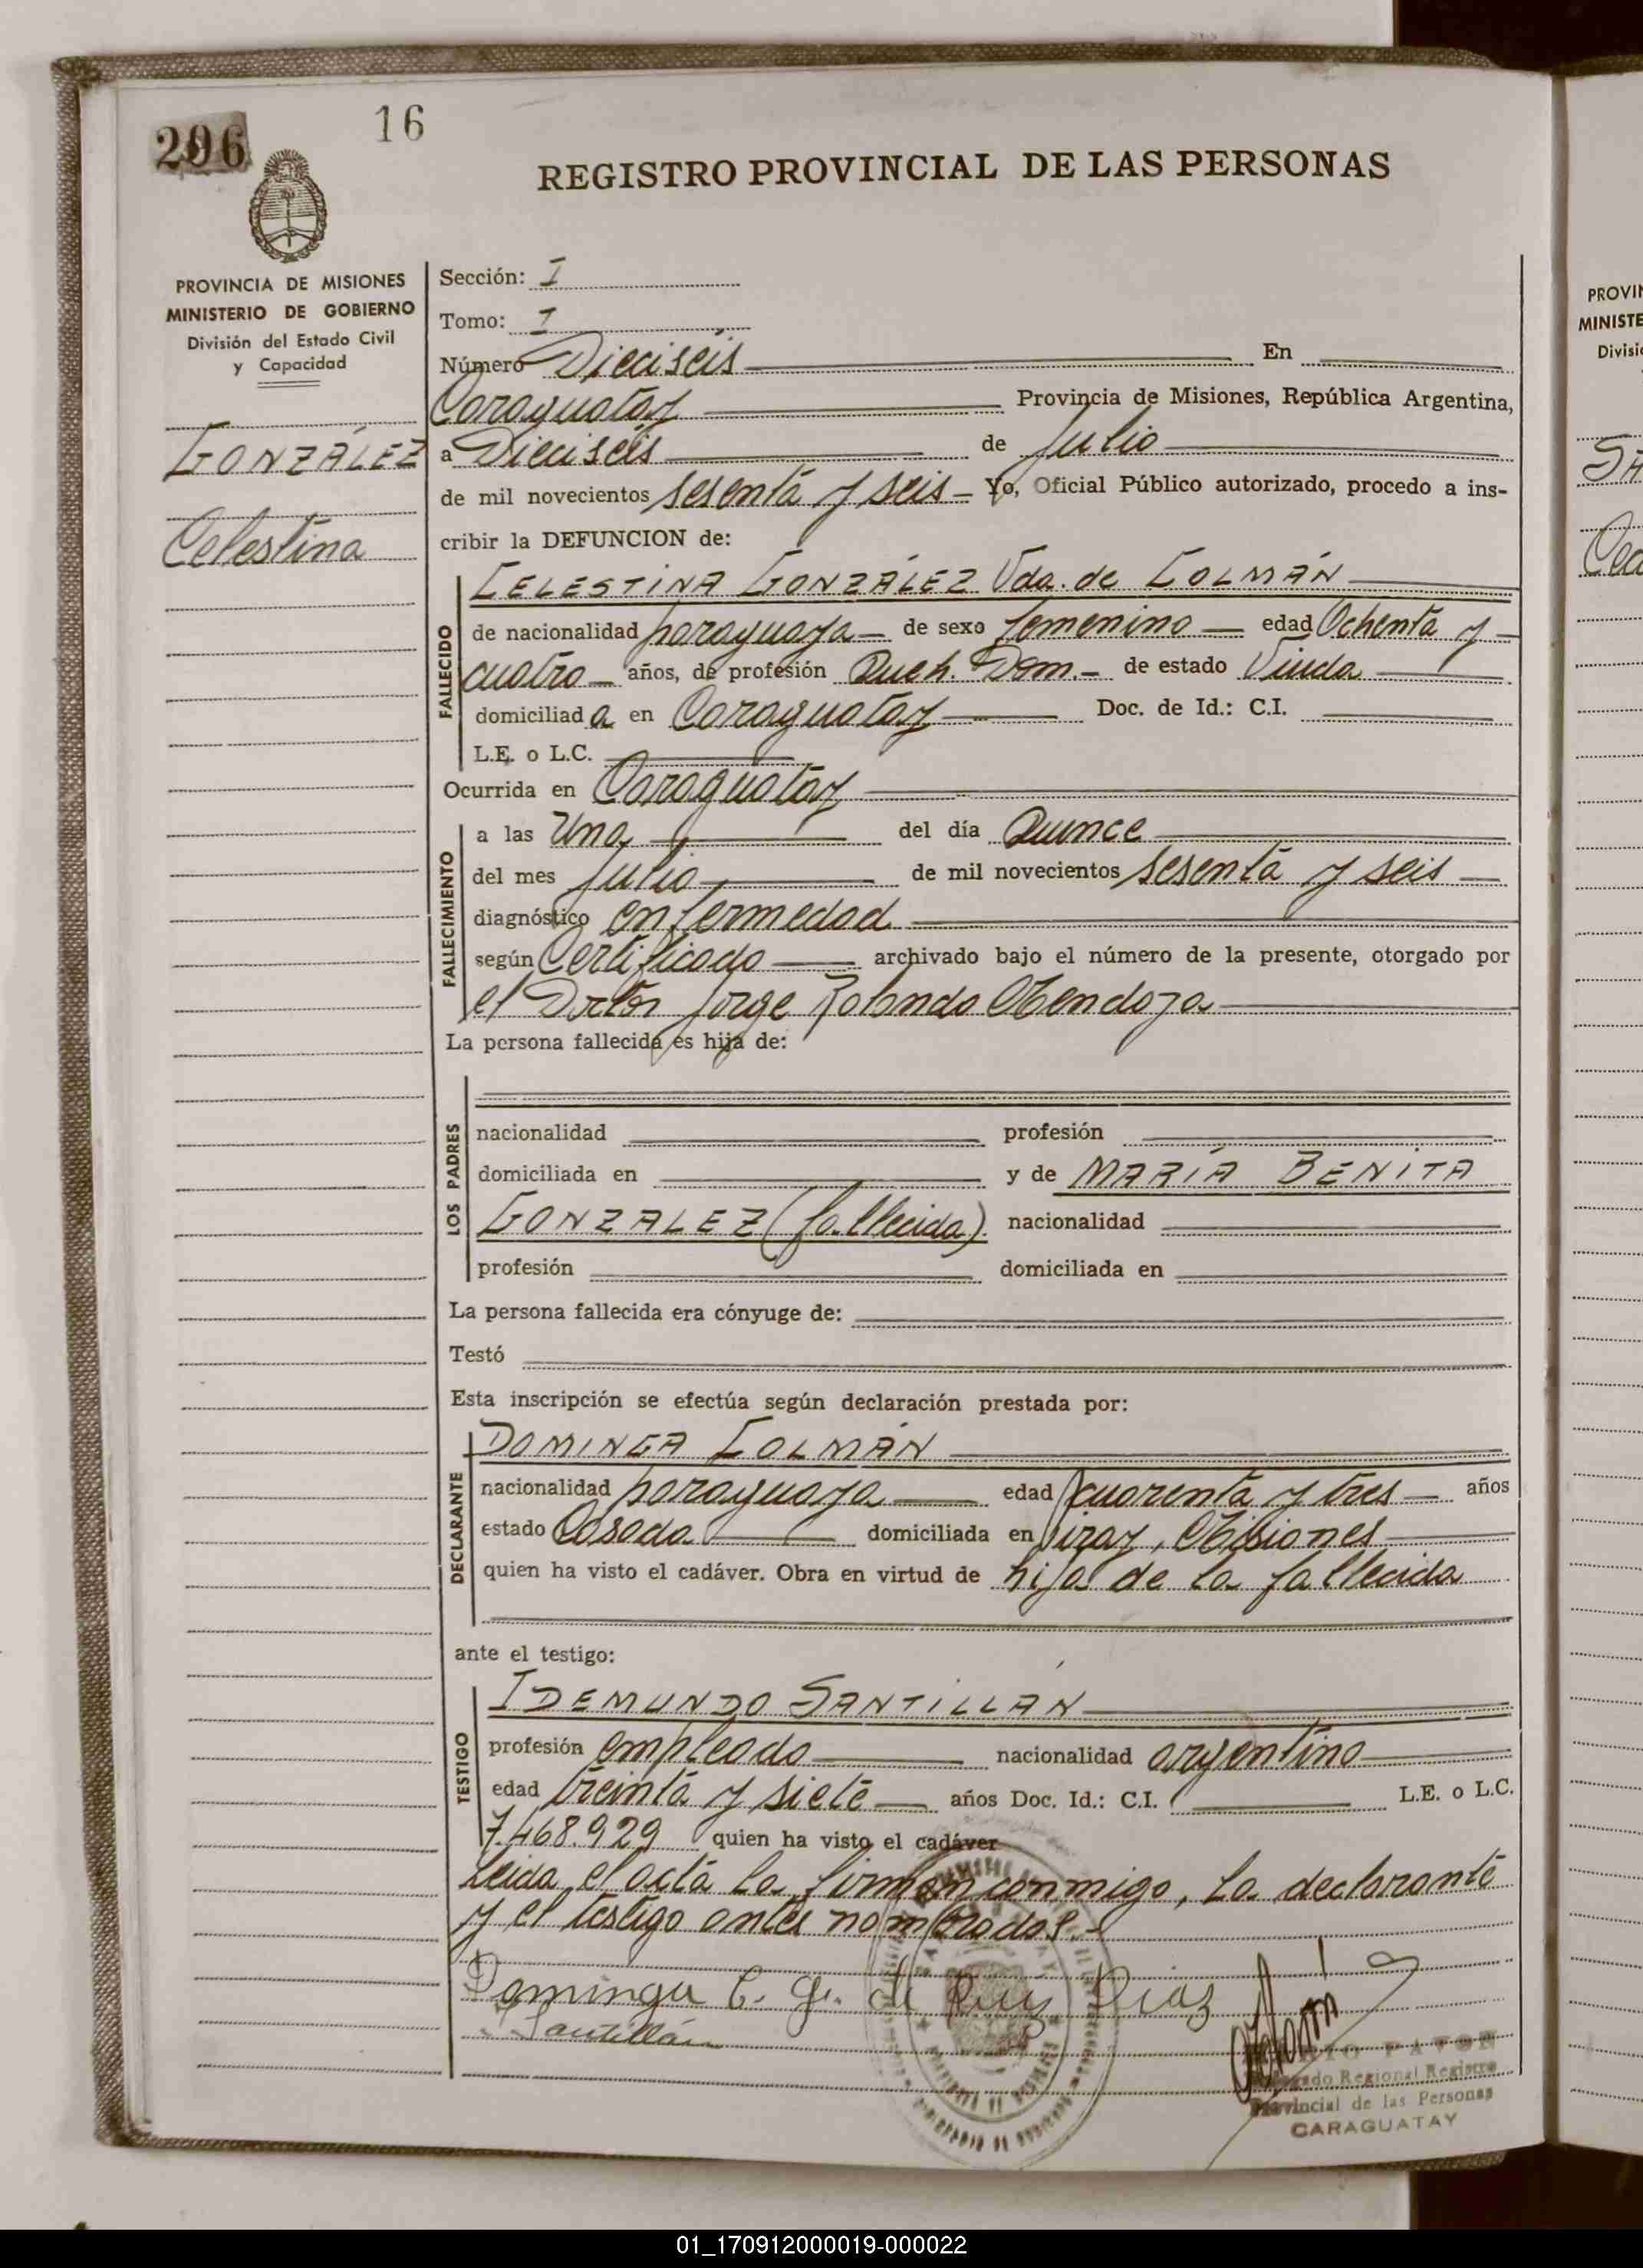 296
16
REGISTRO PROVINCIAL DE LAS PERSONAS
PROVINCIA DE MISIONES
MINISTERIO DE GOBIERNO
División del Estado Civil
y Capacidad
GONZÁLEZ
Celestina
Sección: I
Tomo: I
Número Dieciséis En
Caraguatay Provincia de Misiones, República Argentina,
a Dieciséis de Julio
de mil novecientos sesenta y seis Yo, Oficial Público autorizado, procedo a ins-
cribir la DEFUNCION de:
FALLECIDO
CELESTINA GONZÁLEZ Vda. de COLMÁN
de nacionalidad paraguaya de sexo femenino edad Ochenta y
cuatro años, de profesión Queh. Dom. de estado Viuda
domiciliada en Caraguatay Doc. de Id.: C.I.
L.E. o L.C.
Ocurrida en Caraguatay
FALLECIMIENTO
a las Una del día Quince
del mes Julio de mil novecientos sesenta y seis
diagnóstico enfermedad
según Certificado archivado bajo el número de la presente, otorgado por
el Doctor Jorge Rolando Mendoza
La persona fallecida es hija de:
LOS PADRES
nacionalidad profesión
domiciliada en y de MARÍA BENITA
GONZALEZ (fallecida). nacionalidad
profesión domiciliada en
La persona fallecida era cónyuge de:
Testó
Esta inscripción se efectúa según declaración prestada por:
DECLARANTE
DOMINGA COLMÁN
nacionalidad paraguaya edad cuarenta y tres años
estado Casada domiciliada en Piray, Misiones
quien ha visto el cadáver. Obra en virtud de hija de la fallecida
ante el testigo:
TESTIGO
IDEMUNDO SANTILLÁN
profesión empleado nacionalidad argentino
edad treinta y siete años Doc. Id.: C.I. L.E. o L.C.
7.468.929 quien ha visto el cadáver
Leida el acta la firman conmigo, la declarante
y el testigo antes nombrados.-
Dominga C. G. de Ruiz Diaz
Santillán
PAVON
Regional Registro
Provincial de las Personas
CARAGUATAY
PROVIN
MINISTE
Divisi
01_170912000019-000022